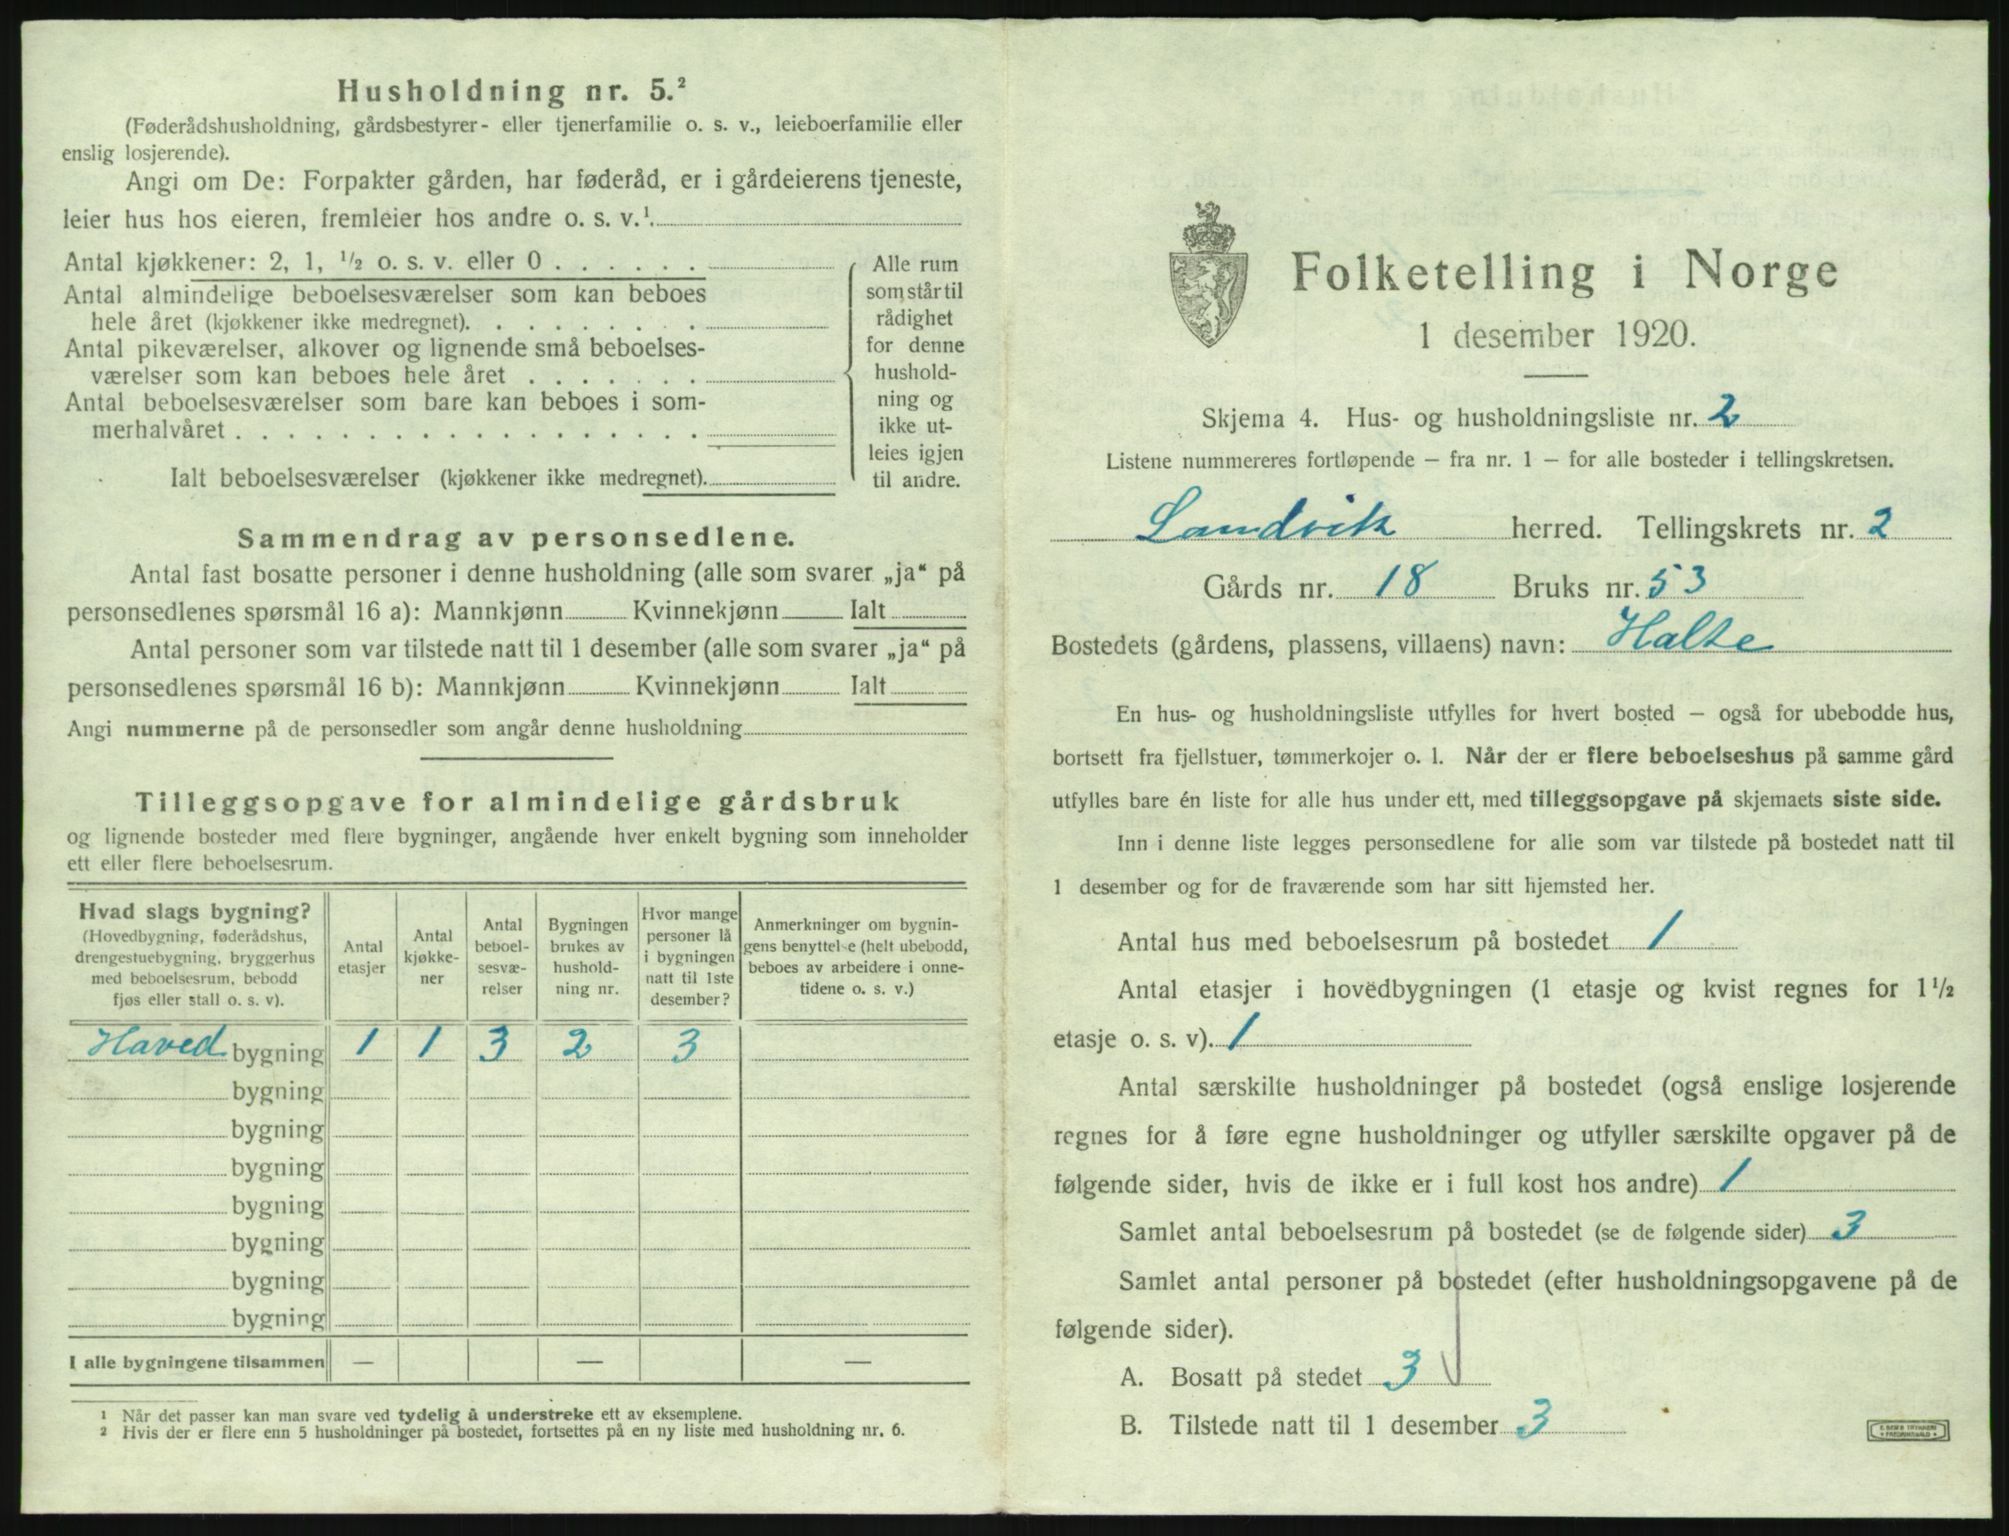 Husholdning nr. 5.²
(Føderådshusholdning, gårdsbestyrer- eller tjenerfamilie o. s. v., leieboerfamilie eller
enslig losjerende).
Angi om De: Forpakter gården, har føderåd, er i gårdeierens tjeneste,
leier hus hos eieren, fremleier hos andre o. s. v.¹
Antal kjøkkener: 2, 1, ½ o. s. v. eller 0 . . . . . .
Antal almindelige beboelsesværelser som kan beboes
hele året (kjøkkener ikke medregnet). . . . . . . . .
Antal pikeværelser, alkover og lignende små beboelses-
værelser som kan beboes hele året . . . . . . .
Antal beboelsesværelser som bare kan beboes i som-
merhalvåret . . . . . . . . . . . . . . . . . .
Ialt beboelsesværelser (kjøkkener ikke medregnet).
Alle rum
som står til
rådighet
for denne
hushold-
ning og
ikke ut-
leies igjen
til andre.
Sammendrag av personsedlene.
Antal fast bosatte personer i denne husholdning (alle som svarer „ja“ på
personsedlenes spørsmål 16 a): Mannkjønn Kvinnekjønn Ialt
Antal personer som var tilstede natt til 1 desember (alle som svarer „ja“ på
personsedlenes spørsmål 16 b): Mannkjønn Kvinnekjønn Ialt
Angi nummerne på de personsedler som angår denne husholdning
Tilleggsopgave for almindelige gårdsbruk
og lignende bosteder med flere bygninger, angående hver enkelt bygning som inneholder
ett eller flere beboelsesrum.
Hvad slags bygning?
(Hovedbygning, føderådshus,
drengestuebygning, bryggerhus
med beboelsesrum, bebodd
fjøs eller stall o. s. v).
Antal
etasjer
Antal
kjøkke-
ner
Antal
beboel-
sesvæ-
relser
Bygningen
brukes av
hushold-
ning nr.
Hvor mange
personer lå
i bygningen
natt til 1ste
desember?
Anmerkninger om bygnin-
gens benyttelse (helt ubebodd,
beboes av arbeidere i onne-
tidene o. s. v.)
Haved bygning 1 1 3 2 3
bygning
bygning
bygning
bygning
bygning
bygning
bygning
I alle bygningene tilsammen — — —
¹ Når det passer kan man svare ved tydelig å understreke ett av eksemplene.
² Hvis der er flere enn 5 husholdninger på bostedet, fortsettes på en ny liste med husholdning nr. 6.
Folketelling i Norge
1 desember 1920.
Skjema 4. Hus- og husholdningsliste nr. 2
Listene nummereres fortløpende – fra nr. 1 – for alle bosteder i tellingskretsen.
Landvik herred. Tellingskrets nr. 2
Gårds nr. 18 Bruks nr. 53
Bostedets (gårdens, plassens, villaens) navn: Halte
En hus- og husholdningsliste utfylles for hvert bosted – også for ubebodde hus,
bortsett fra fjellstuer, tømmerkojer o. l. Når der er flere beboelseshus på samme gård
utfylles bare én liste for alle hus under ett, med tilleggsopgave på skjemaets siste side.
Inn i denne liste legges personsedlene for alle som var tilstede på bostedet natt til
1 desember og for de fraværende som har sitt hjemsted her.
Antal hus med beboelsesrum på bostedet 1
Antal etasjer i hovedbygningen (1 etasje og kvist regnes for 1½
etasje o. s. v). 1
Antal særskilte husholdninger på bostedet (også enslige losjerende
regnes for å føre egne husholdninger og utfyller særskilte opgaver på de
følgende sider, hvis de ikke er i full kost hos andre) 1
Samlet antal beboelsesrum på bostedet (se de følgende sider) 3
Samlet antal personer på bostedet (efter husholdningsopgavene på de
følgende sider).
A. Bosatt på stedet 3
B. Tilstede natt til 1 desember 3